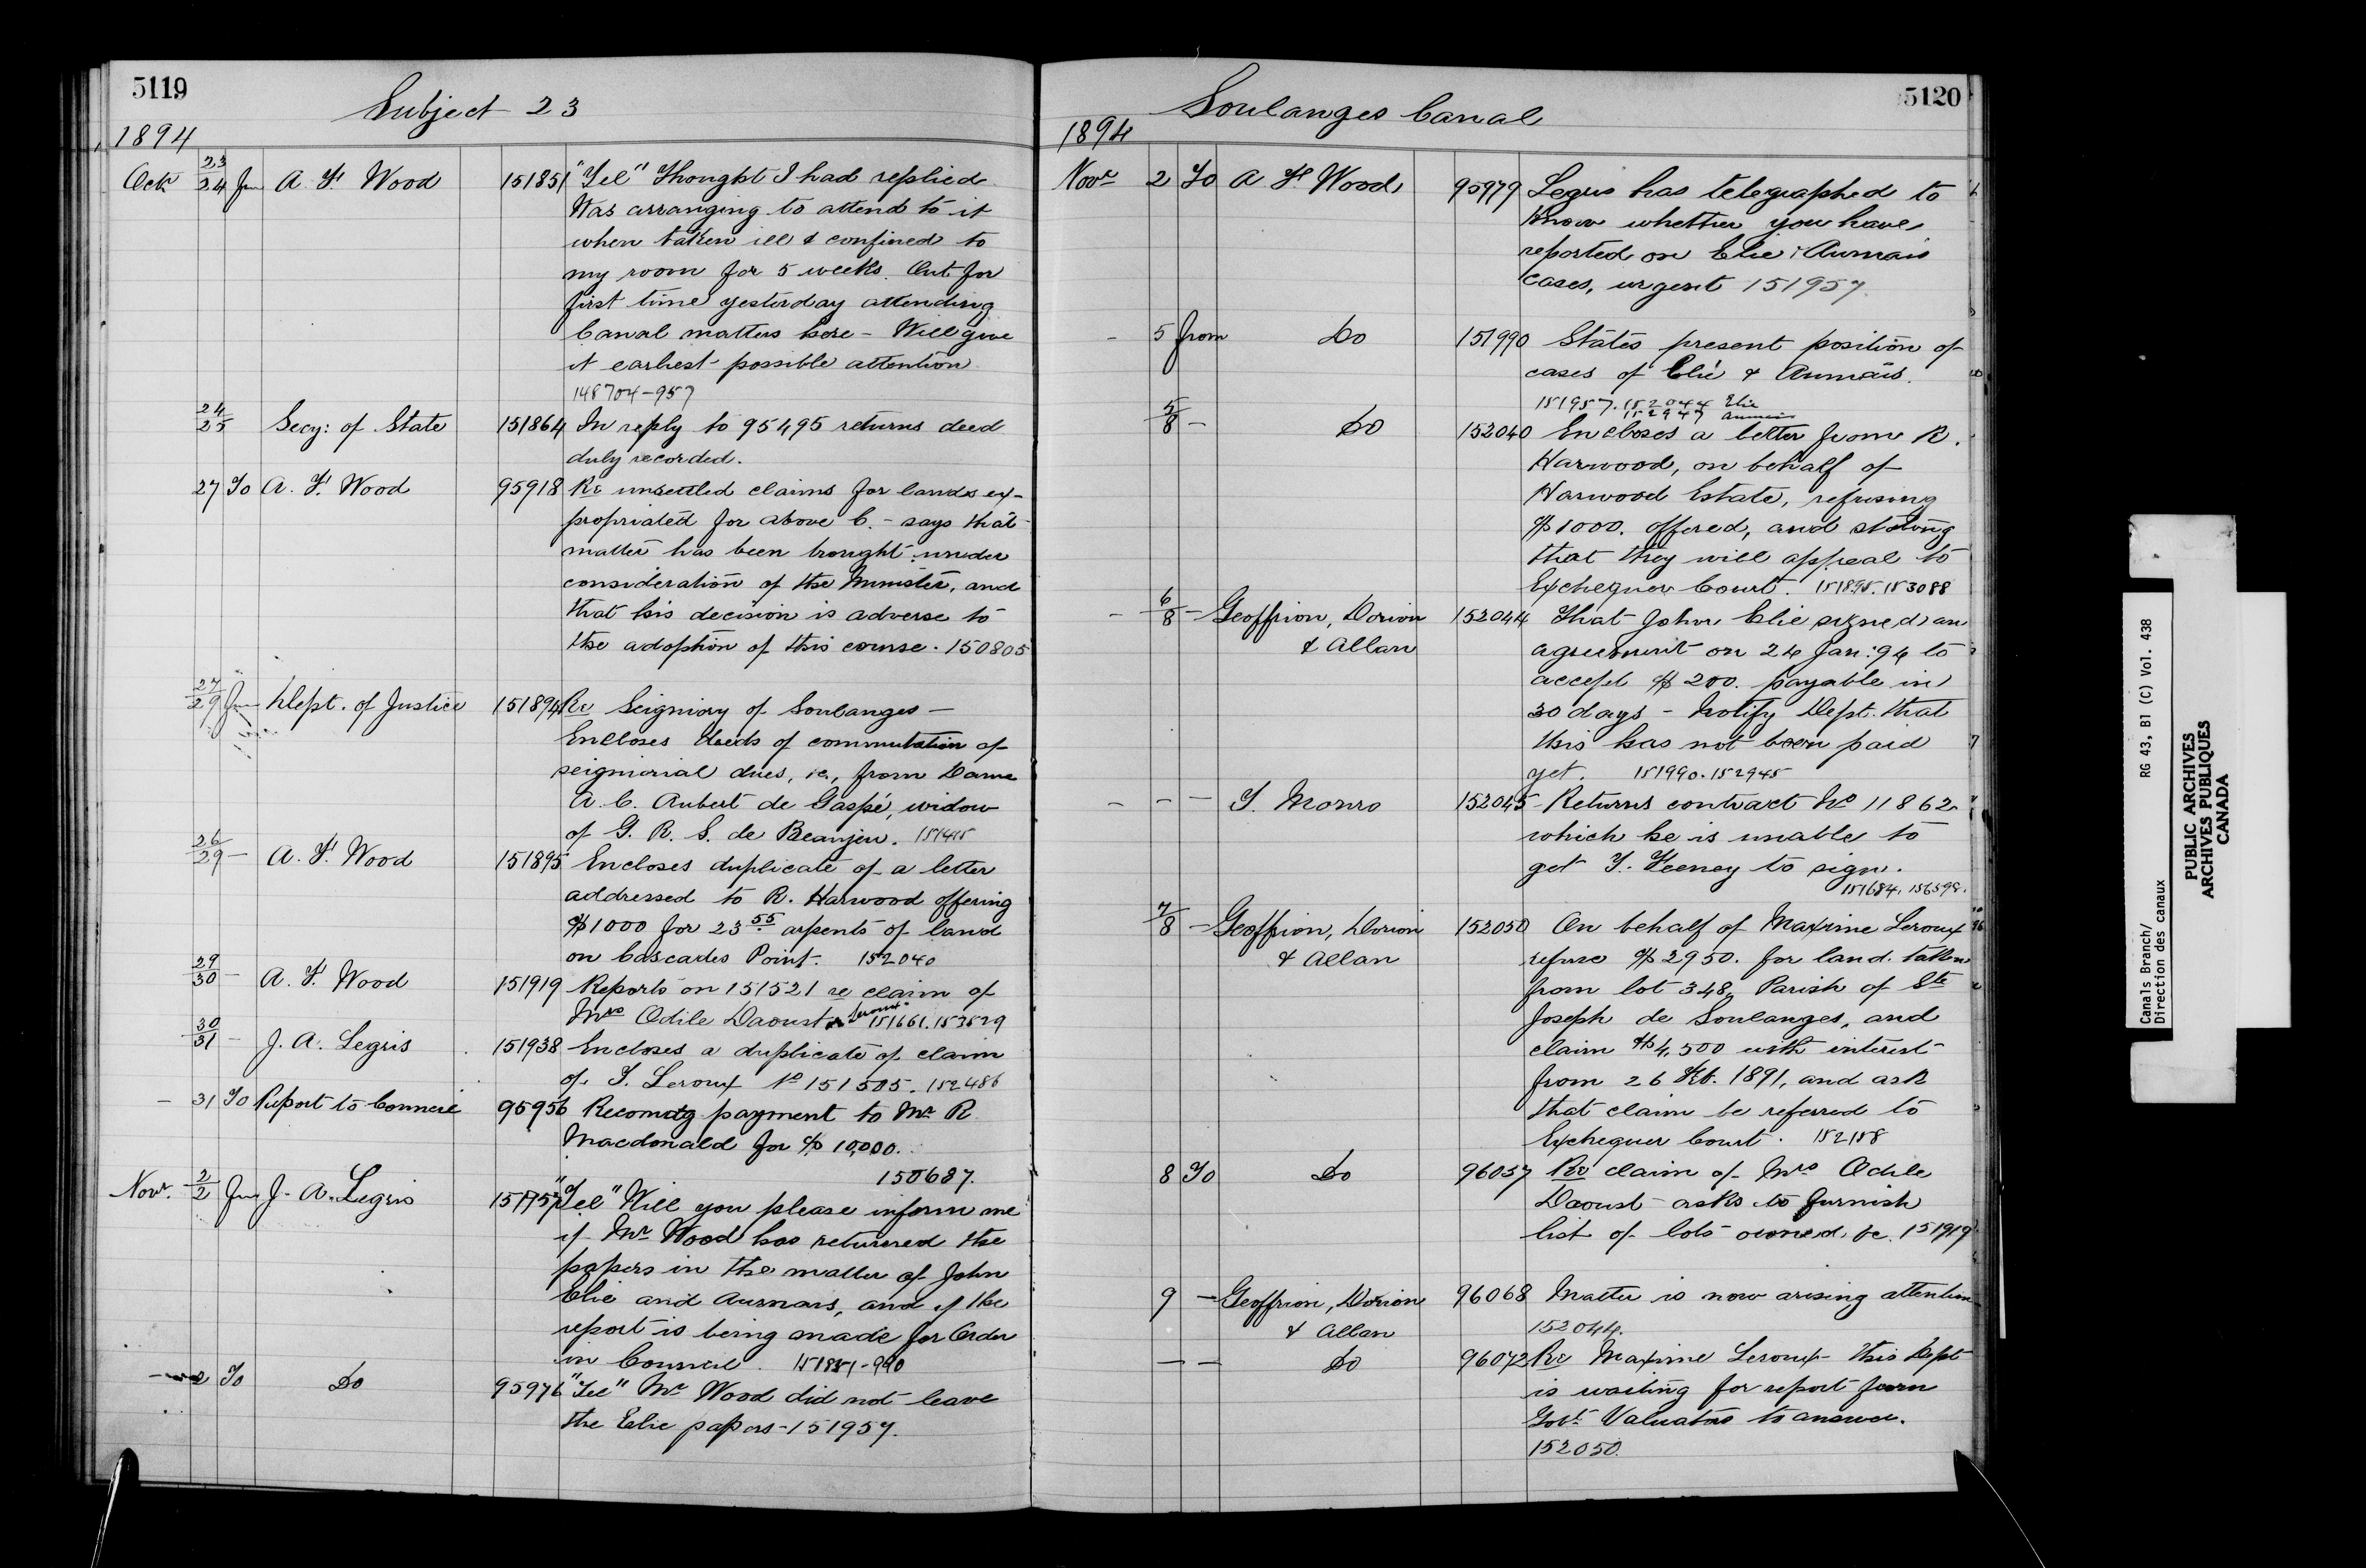 5119
Subject 23
1894
Octr 23/24 fm A. F. Wood 151851 "Tel" Thought I had replied
Was arranging to attend to it
when taken ill & confined to
my room for 5 weeks. Out for
first time yesterday attending
Canal matters here - Will give
it earliest possible attention
148704-957
24/25 Secy: of State 151864 In reply to 95495 returns deed
duly recorded.
27 To A. F. Wood 95918 Re unsettled claims for lands ex-
propriated for above C. - says that
matter has been brought under
consideration of the Minister, and
that his decision is adverse to
the adoption of this course. 150805
27/29 fm Dept. of Justice 151894 Re Seigniory of Soulanges -
Encloses deeds of commutation of
seigniorial dues, &c., from Dame
A. C. Aubert de Gaspé, widow
of G. R. S. de Beaujeu.
26/29 - A. F. Wood 151895 Encloses duplicate of a letter
addressed to R. Harwood offering
$1000 for 23 55 arpents of land
on Cascades Point. 152040
29/30 - A. F. Wood 151919 Reports on 151521 re claim of
Mrs Odile Daoust Leroux 151661. 153529
30/31 - J. A. Legris 151938 Encloses a duplicate of claim
of J. Leroux No 151505. 152486
- 31 To Report to Council 95956 Recomdg payment to Mr R
Macdonald for $10,000.
150687.
Novr. 2/2 fm J. A. Legris 151957 "Tel" Will you please inform me
if Mr Wood has returned the
papers in the matter of John
Elie and Aumais, and if the
report is being made for Order
in Council. 151851-990
- 2 To Do 95976 "Tel" Mr Wood did not leave
the Elie papers - 151957.
5120
Soulanges Canal
1894
Novr 2 To A F Wood 95979 Legris has telegraphed to
know whether you have
reported on Elie & Aumais
cases, urgent 151957.
- 5 from Do 151990 States present position of
cases of Elié & Aumais.
151957. 152044 Elie
152947 Aumais
5/8 - Do 152040 Encloses a letter from R.
Harwood, on behalf of
Harwood Estate, refusing
$1000. offered, and stating
that they will appeal to
Exchequer Court. 151895. 153088
- 6/8 - Geoffrion, Dorion 152044 That John Elie signed an
& Allan agreement on 24 Jan: 94 to
accept $200. payable in
30 days - Notify Dept. that
this has not been paid
yet. 151990. 152945
- - - T. Monro 152045 Returns contract No 11862
which he is unable to
get T. Feeney to sign.
151684. 156598.
7/8 - Geoffrion, Dorion 152050 On behalf of Maxime Leroux
& Allan refuse $2950. for land taken
from lot 348, Parish of Ste
Joseph de Soulanges, and
claim $4,500 with interest
from 26 Feb. 1891, and ask
that claim be referred to
Exchequer Court. 152158
8 To Do 96037 Re claim of Mrs Odile
Daoust - asks to furnish
list of lots owned, &c. 151919
9 - Geoffrion, Dorion 96068 Matter is now arising attention
& Allan 152044.
- - Do 96072 Re Maxime Leroux - this Dept
is waiting for report from
Govt. Valuators to answer.
152050.
Canals Branch/ RG 43, B1 (C) Vol. 438
Direction des canaux
PUBLIC ARCHIVES
ARCHIVES PUBLIQUES
CANADA